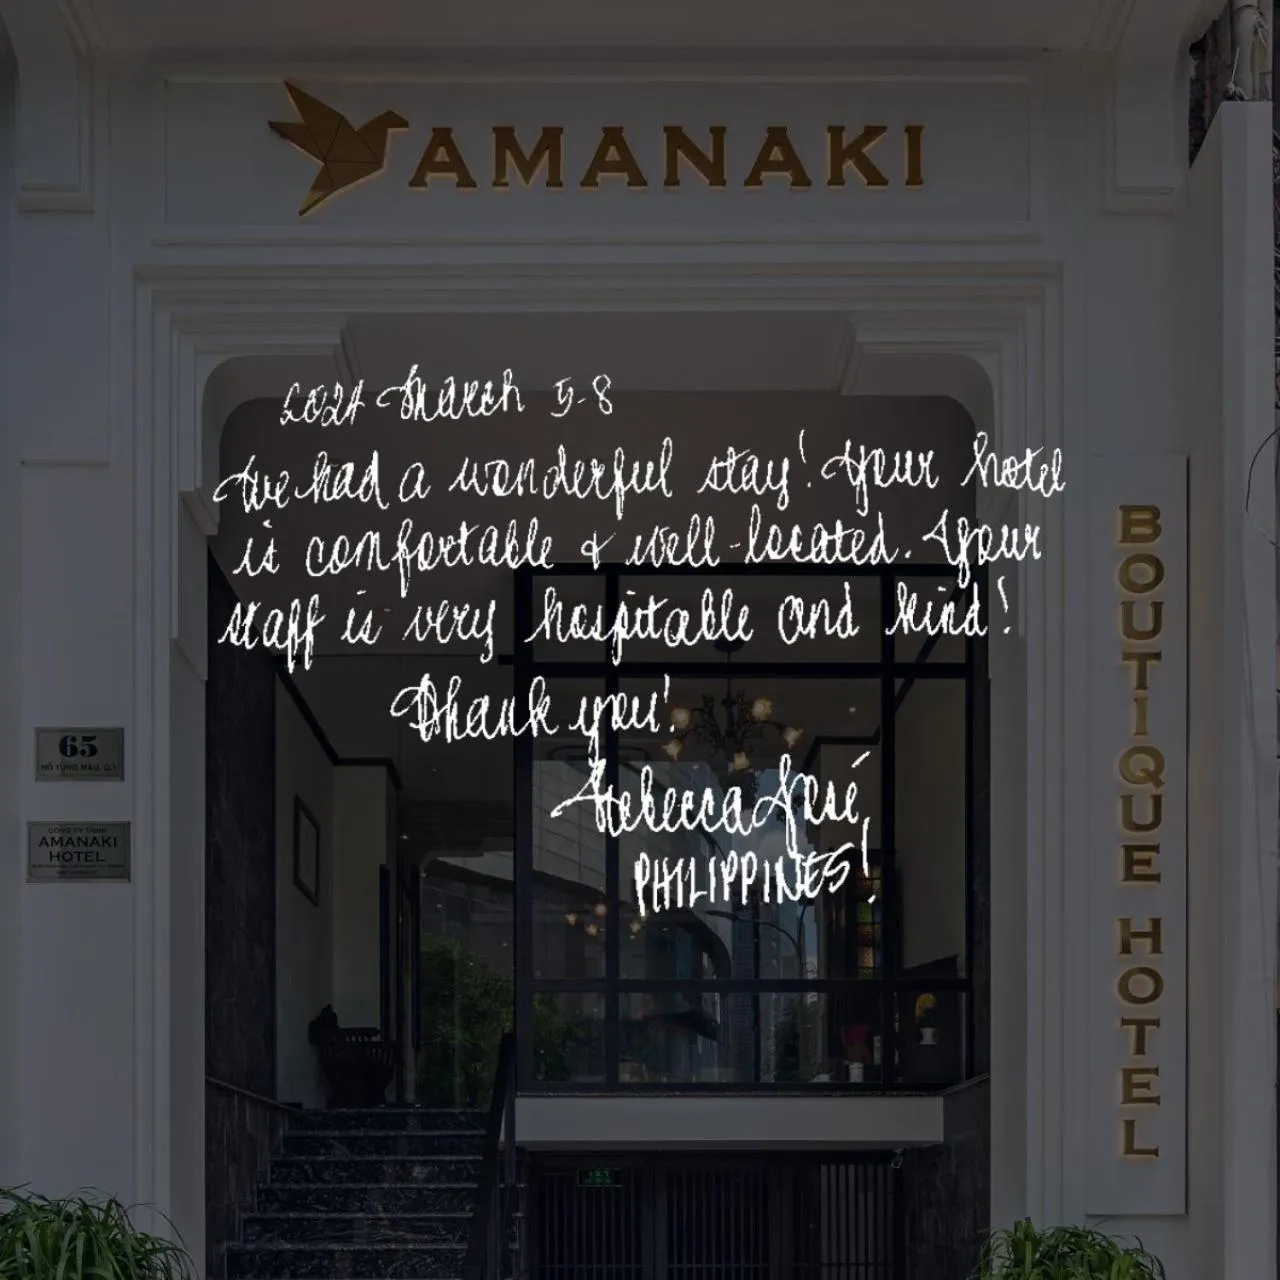 AMANAKI
2024 March 5-8
We had a wonderful stay! Your hotel
is comfortable & well-located. Your
staff is very hospitable and kind!
Thank you!
Rebecca José,
PHILIPPINES!
BOUTIQUE HOTEL
65
HỒ TÙNG MẬU, Q.1
CÔNG TY TNHH
AMANAKI
HOTEL